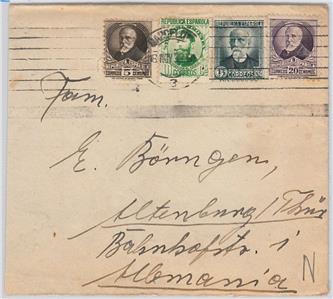 REPUBLICA ESPAÑOLA
5
10
15
20
CORREOS
CENTIMOS
Fam.
E. Börngen,
Altenburg/Thür
Bahnhofstr. 1
Alemania
N